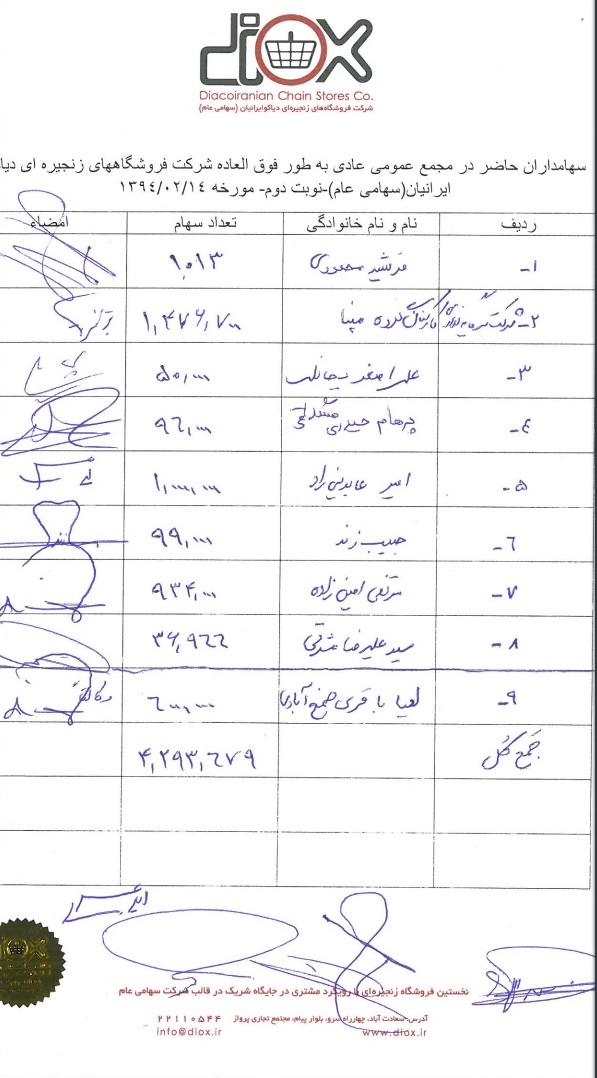 diox
Diacoiranian Chain Stores Co.
شرکت فروشگاه‌های زنجیره‌ای دیاکوایرانیان (سهامی عام)
سهامداران حاضر در مجمع عمومی عادی به طور فوق العاده شرکت فروشگاههای زنجیره ای دیا
ایرانیان(سهامی عام)-نوبت دوم- مورخه ۱۳۹۴/۰۲/۱۴
ردیف نام و نام خانوادگی تعداد سهام امضاء
۱- ۱,۰۱۳
۲- شرکت سرمایه گذاری کارکنان گروه مپنا ۱,۴۷۶,۷۰۰
۳- علی اصغر ۵۰,۰۰۰
۴- پرهام ۹۶,۰۰۰
۵- امیر عابدینی راد ۱,۰۰۰,۰۰۰
۶- حبیب زند ۹۹,۰۰۰
۷- مرتضی امینی زاده ۹۳۴,۰۰۰
۸- سید علیرضا ۳۶,۹۶۶
۹- لعیا باقری ۶۰۰,۰۰۰ وکالتاً
جمع کل ۴,۲۹۳,۶۷۹
diox
نخستین فروشگاه زنجیره‌ای با رویکرد مشتری در جایگاه شریک در قالب شرکت سهامی عام
آدرس:سعادت آباد، چهارراه سرو، بلوار پیام، مجتمع تجاری پرواز ۲۲۱۱۰۵۴۴
www.diox.ir info@diox.ir